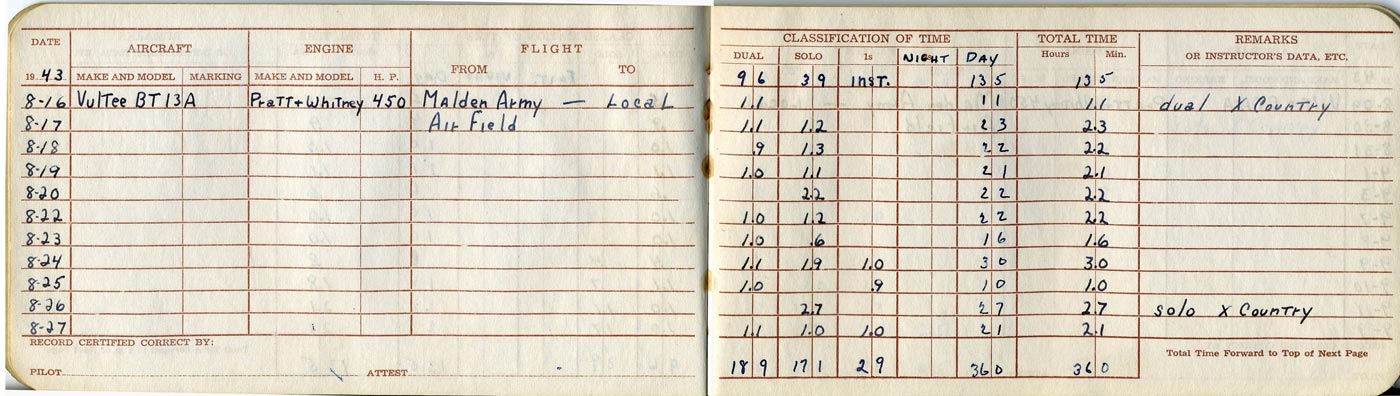 DATE AIRCRAFT ENGINE FLIGHT CLASSIFICATION OF TIME TOTAL TIME REMARKS
19 43 MAKE AND MODEL MARKING MAKE AND MODEL H. P. FROM TO DUAL SOLO 1s NIGHT DAY Hours Min. OR INSTRUCTOR'S DATA, ETC.
9 6 3 9 INST. 13 5 13 5
8-16 VULTEE BT 13A Pratt + Whitney 450 Malden Army — Local 1.1 1 1 1.1 dual X Country
8-17 Air Field 1.1 1.2 2 3 2.3
8-18 .9 1.3 2 2 2.2
8-19 1.0 1.1 2 1 2.1
8-20 2.2 2 2 2.2
8-22 1.0 1.2 2 2 2.2
8-23 1.0 .6 1 6 1.6
8-24 1.1 1.9 1.0 3 0 3.0
8-25 1.0 .9 1 0 1.0
8-26 2.7 2 7 2.7 solo X Country
8-27 1.1 1.0 1.0 2 1 2.1
RECORD CERTIFIED CORRECT BY: Total Time Forward to Top of Next Page
PILOT ATTEST 18 9 17 1 2 9 36 0 36 0